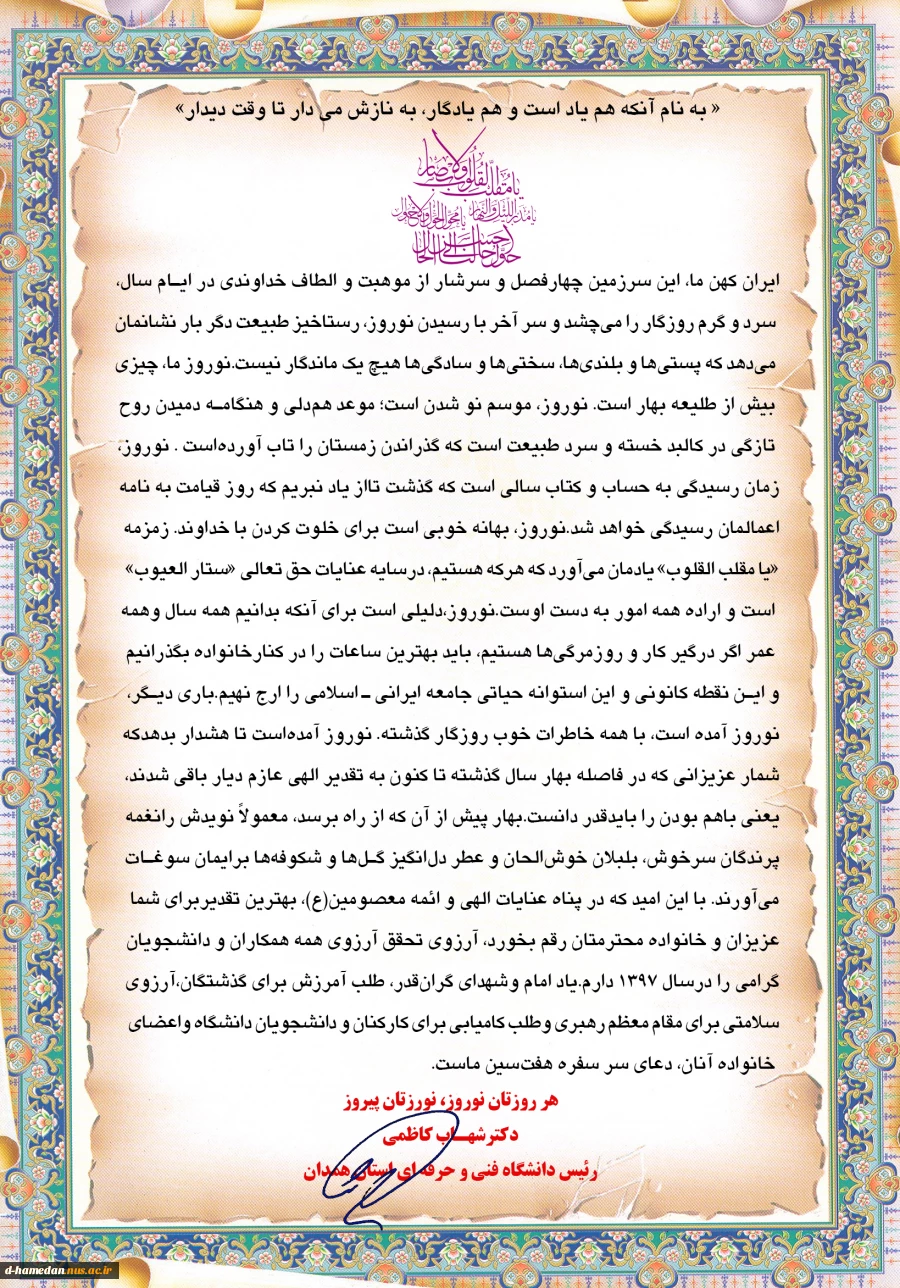 « به نام آنکه هم یاد است و هم یادگار، به نازش می دار تا وقت دیدار»
یا مقلب القلوب والابصار
یا مدبر اللیل والنهار یا محول الحول والاحوال
حول حالنا الی احسن الحال
ایران کهن ما، این سرزمین چهارفصل و سرشار از موهبت و الطاف خداوندی در ایـام سال،
سرد و گرم روزگار را می‌چشد و سر آخر با رسیدن نوروز، رستاخیز طبیعت دگر بار نشانمان
می‌دهد که پستی‌ها و بلندی‌ها، سختی‌ها و سادگی‌ها هیچ یک ماندگار نیست.نوروز ما، چیزی
بیش از طلیعه بهار است. نوروز، موسم نو شدن است؛ موعد هم‌دلی و هنگامـه دمیدن روح
تازگی در کالبد خسته و سرد طبیعت است که گذراندن زمستان را تاب آورده‌است . نوروز،
زمان رسیدگی به حساب و کتاب سالی است که گذشت تااز یاد نبریم که روز قیامت به نامه
اعمالمان رسیدگی خواهد شد.نوروز، بهانه خوبی است برای خلوت کردن با خداوند. زمزمه
«یا مقلب القلوب» یادمان می‌آورد که هرکه هستیم، درسایه عنایات حق تعالی «ستار العیوب»
است و اراده همه امور به دست اوست.نوروز،دلیلی است برای آنکه بدانیم همه سال وهمه
عمر اگر درگیر کار و روزمرگی‌ها هستیم، باید بهترین ساعات را در کنارخانواده بگذرانیم
و ایـن نقطه کانونی و این استوانه حیاتی جامعه ایرانی ـ اسلامی را ارج نهیم.باری دیـگر،
نوروز آمده است، با همه خاطرات خوب روزگار گذشته. نوروز آمده‌است تا هشدار بدهدکه
شمار عزیزانی که در فاصله بهار سال گذشته تا کنون به تقدیر الهی عازم دیار باقی شدند،
یعنی باهم بودن را بایدقدر دانست.بهار پیش از آن که از راه برسد، معمولاً نویدش رانغمه
پرندگان سرخوش، بلبلان خوش‌الحان و عطر دل‌انگیز گـل‌ها و شکوفه‌ها برایمان سوغـات
می‌آورند. با این امید که در پناه عنایات الهی و ائمه معصومین(ع)، بهترین تقدیربرای شما
عزیزان و خانواده محترمتان رقم بخورد، آرزوی تحقق آرزوی همه همکاران و دانشجویان
گرامی را درسال ۱۳۹۷ دارم.یاد امام وشهدای گران‌قدر، طلب آمرزش برای گذشتگان،آرزوی
سلامتی برای مقام معظم رهبری وطلب کامیابی برای کارکنان و دانشجویان دانشگاه واعضای
خانواده آنان، دعای سر سفره هفت‌سین ماست.
هر روزتان نوروز، نورزتان پیروز
دکترشهـاب کاظمی
رئیس دانشگاه فنی و حرفه ای استان همدان
d-hamedan.nus.ac.ir